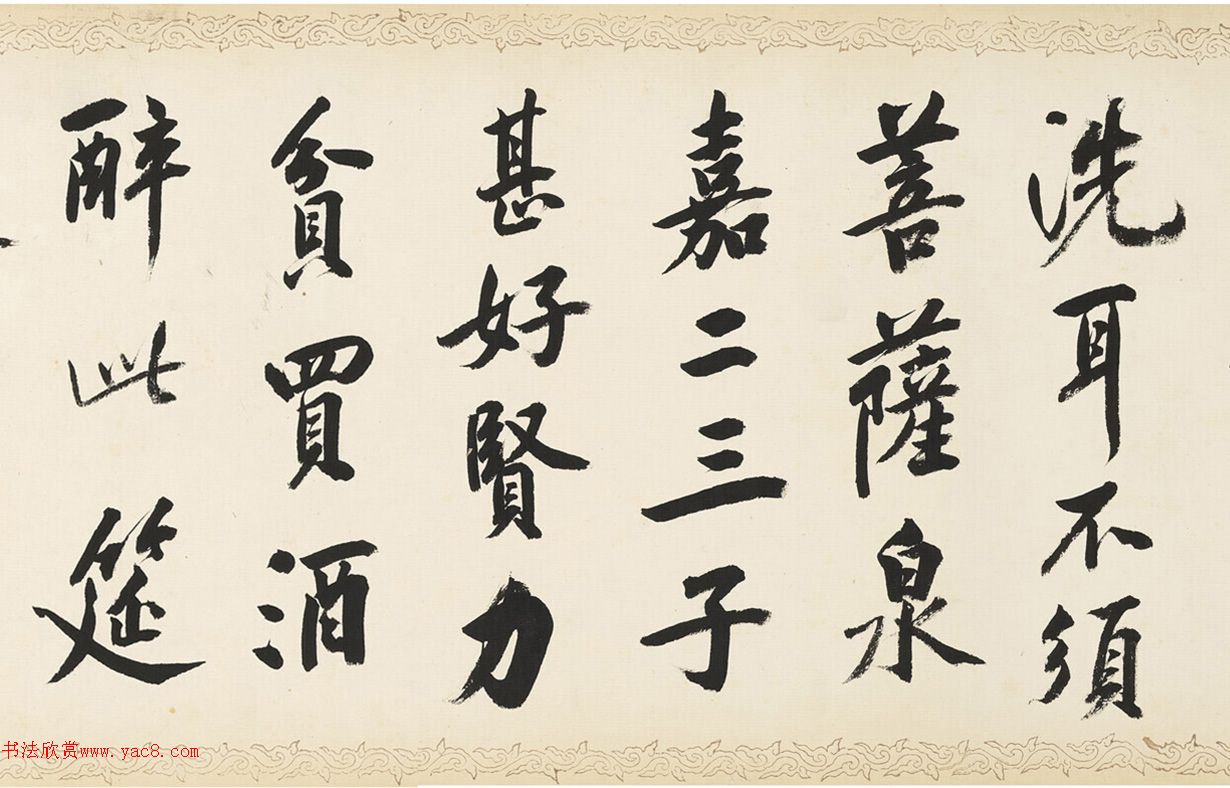 洗耳不須
菩薩泉
嘉二三子
甚好賢力
貧買酒
醉此筵
书法欣赏www.yac8.com